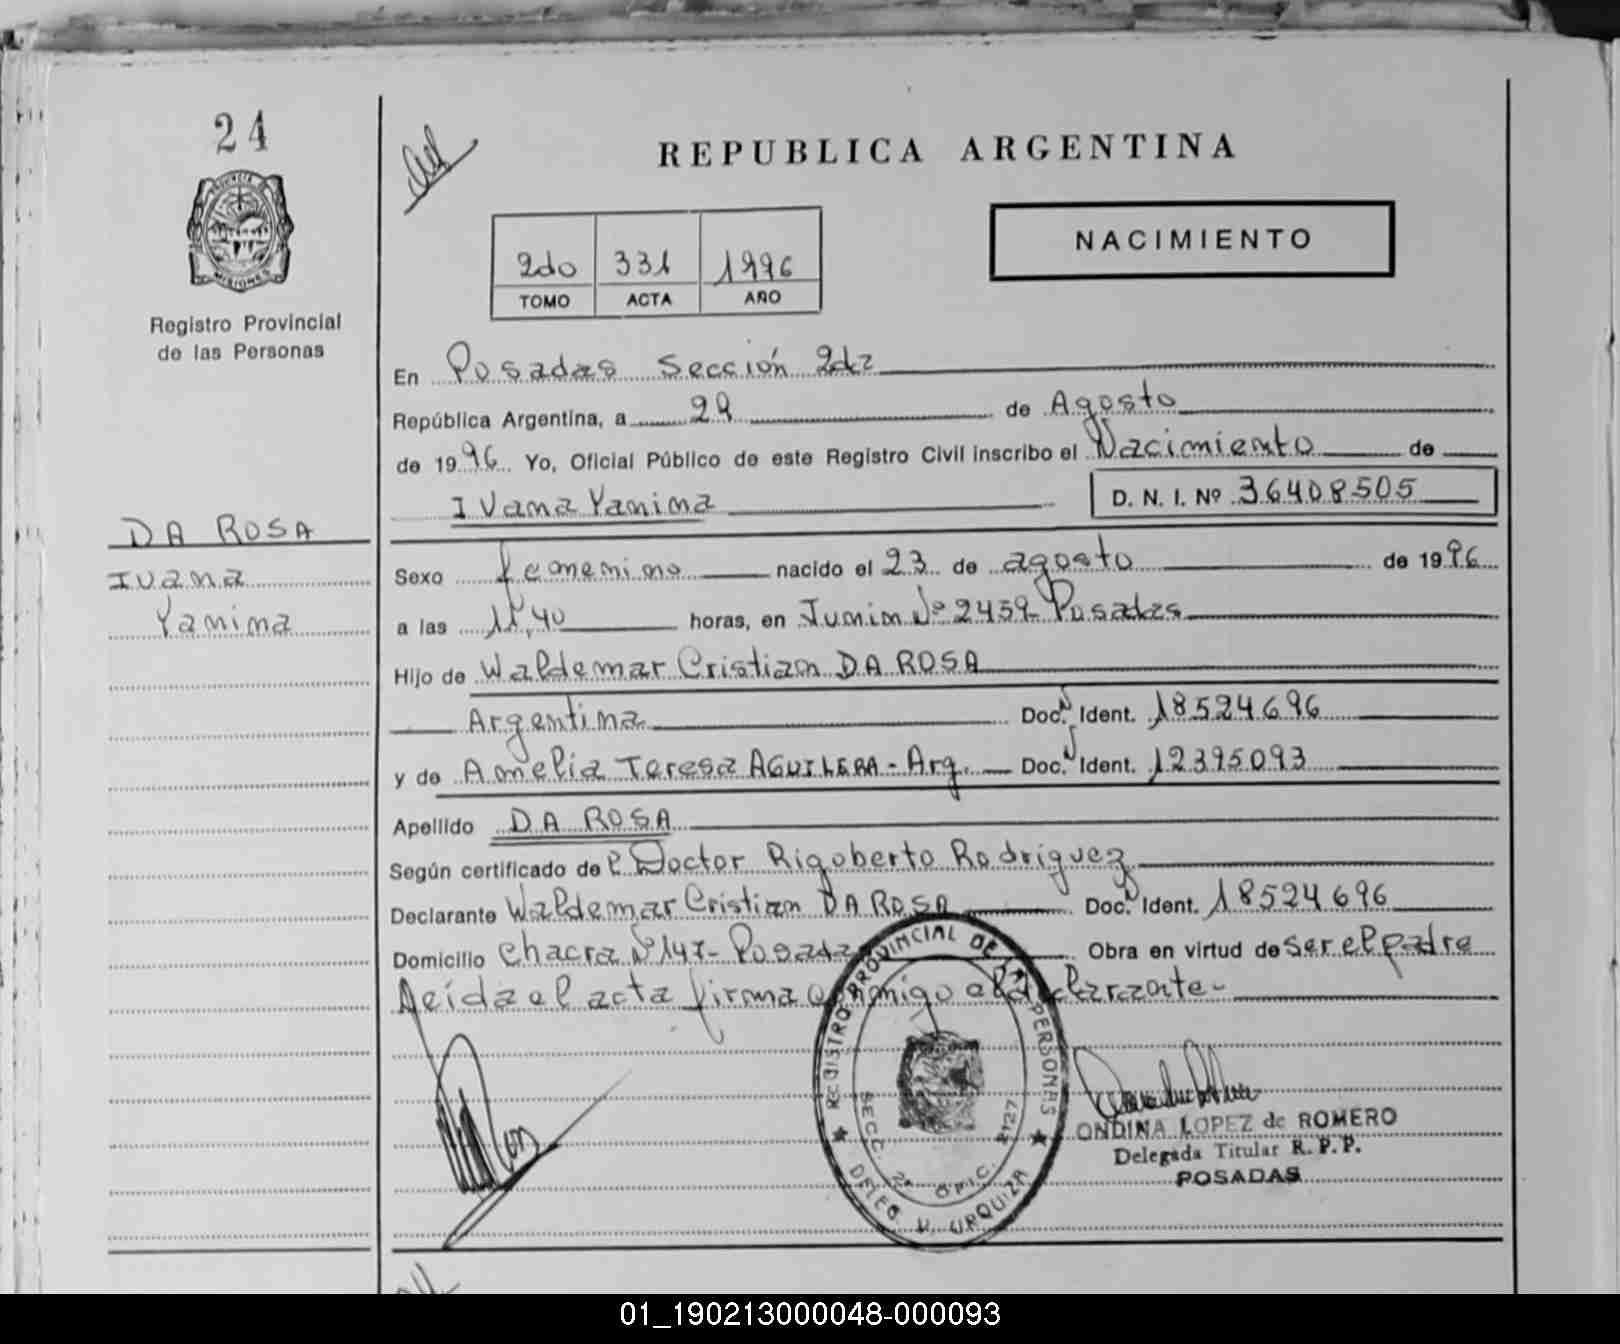 24
PROVINCIA DE
MISIONES
Registro Provincial
de las Personas
REPUBLICA ARGENTINA
NACIMIENTO
2do 331 1996
TOMO ACTA AÑO
En Posadas Sección 2da
República Argentina, a 29 de Agosto
de 1996 Yo, Oficial Público de este Registro Civil inscribo el Nacimiento de
Ivana Yanina D. N. I. Nº 36408505
DA ROSA
Ivana
Yanina
Sexo femenino nacido el 23 de agosto de 1996
a las 11,40 horas, en Junin Nº 2459 Posadas
Hijo de Waldemar Cristian DA ROSA
Argentina Doc. Ident. 18524696
y de Amelia Teresa AGUILERA - Arg. Doc. Ident. 12395093
Apellido DA ROSA
Según certificado del Doctor Rigoberto Rodriguez
Declarante Waldemar Cristian DA ROSA Doc. Ident. 18524696
Domicilio Chacra Nº 147 - Posadas Obra en virtud de ser el padre
Leída el acta firma conmigo el declarante -
REGISTRO PROVINCIAL DE LAS PERSONAS
SECC. 2a OFIC. 2127
DELEG V. URQUIZA
ONDINA LOPEZ de ROMERO
Delegada Titular R. P. P.
POSADAS
01_190213000048-000093